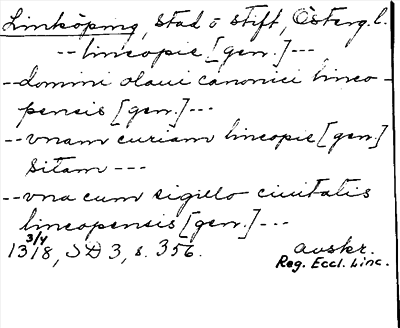 Linköping, stad o stift, Österg. l.
-- lincopie [gen.] ---
-- domini olaui canonici linco-
pensis [gen.] ---
-- vnam curiam lincopie [gen.]
sitam ---
-- vna cum sigillo ciuitatis
lincopensis [gen.] ---
1318 3/4, SD 3, s. 356. avskr.
Reg. Eccl. Linc.